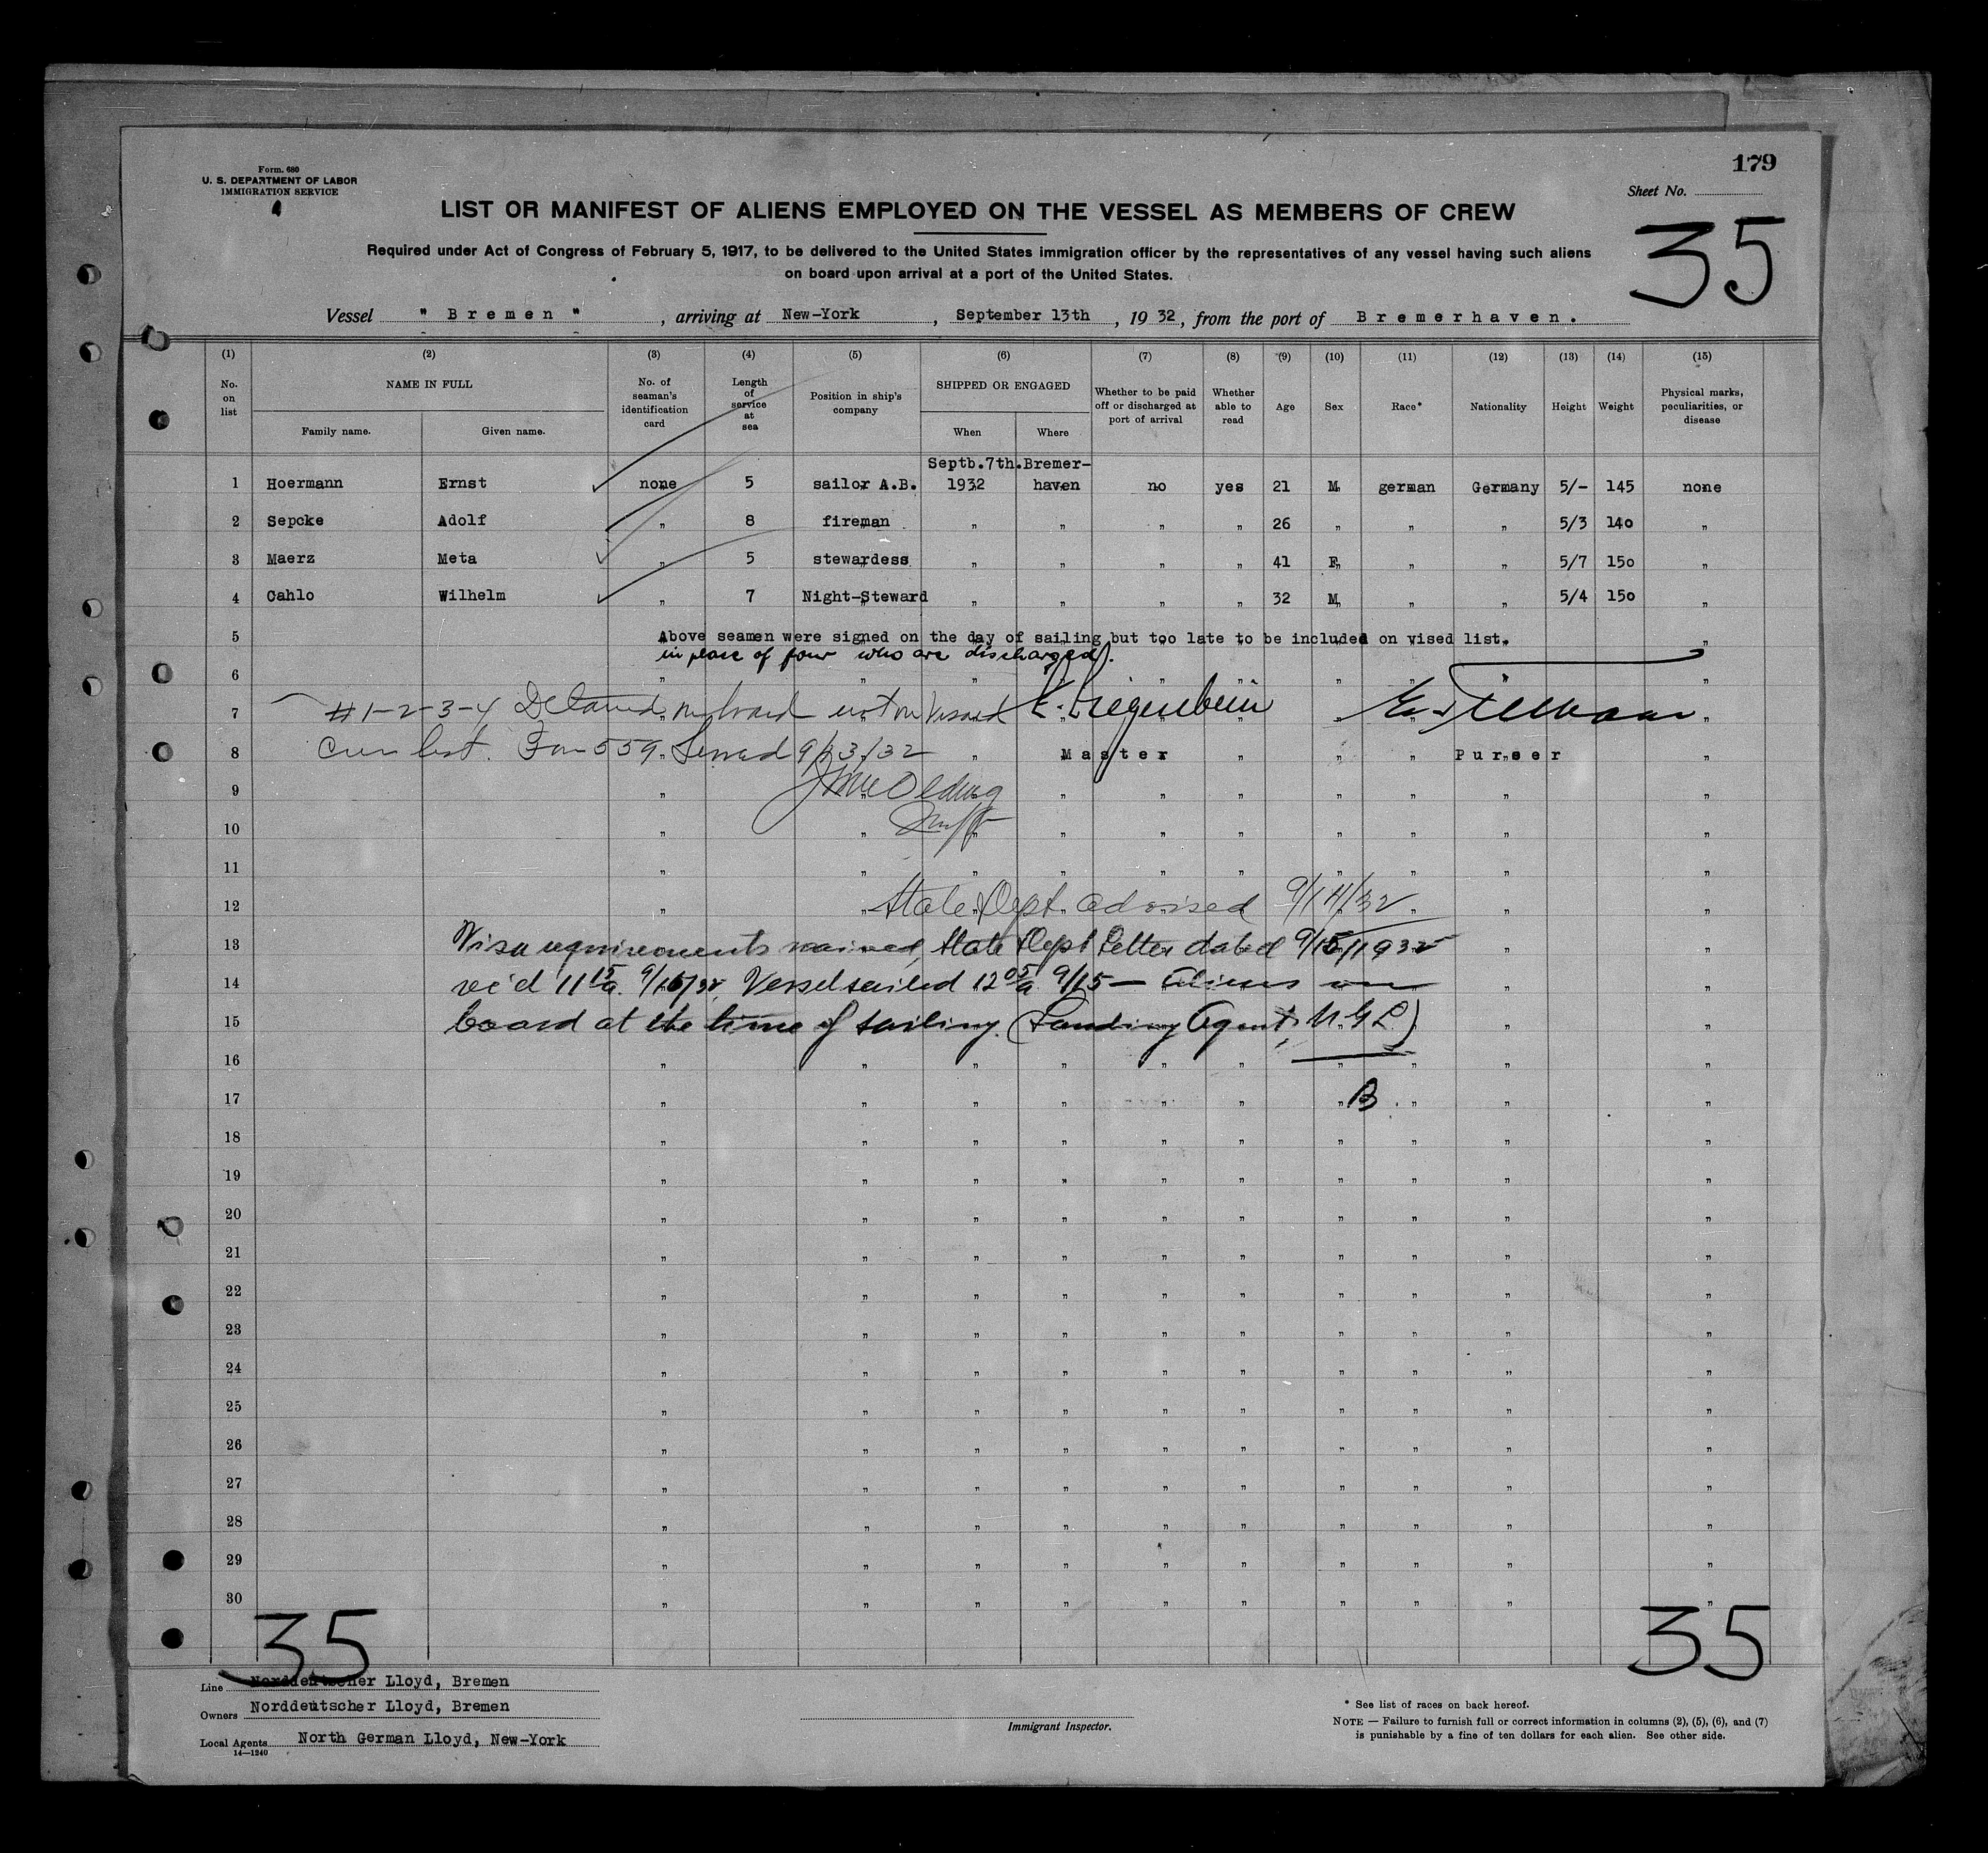 179
Form. 680
U. S. DEPARTMENT OF LABOR
IMMIGRATION SERVICE
Sheet No.
35
LIST OR MANIFEST OF ALIENS EMPLOYED ON THE VESSEL AS MEMBERS OF CREW
Required under Act of Congress of February 5, 1917, to be delivered to the United States immigration officer by the representatives of any vessel having such aliens
on board upon arrival at a port of the United States.
Vessel " Bremen " , arriving at New-York , September 13th , 1932, from the port of Bremerhaven.
(1) (2) (3) (4) (5) (6) (7) (8) (9) (10) (11) (12) (13) (14) (15)
No. on list NAME IN FULL Family name. Given name. No. of seaman's identification card Length of service at sea Position in ship's company SHIPPED OR ENGAGED When Where Whether to be paid off or discharged at port of arrival Whether able to read Age Sex Race* Nationality Height Weight Physical marks, peculiarities, or disease
Septb.7th. Bremer-
1 Hoermann Ernst none 5 sailor A.B. 1932 haven no yes 21 M german Germany 5/- 145 none
2 Sepcke Adolf " 8 fireman " " " " 26 " " " 5/3 140 "
3 Maerz Meta " 5 stewardess " " " " 41 F " " 5/7 150 "
4 Cahlo Wilhelm " 7 Night-Steward " " " " 32 M " " 5/4 150 "
5 Above seamen were signed on the day of sailing but too late to be included on vised list.
in place of four who are discharged.
6
7 #1-2-3-4 Detained on board not on Visaed
8 Crew list. Form 559 Served 9/13/32 Master Purser
9
10
11
12 State Dept. advised 9/14/32
13 Visa requirements waived, State Dept Letter dated 9/15/1932
14 rec'd 11 15 a. 9/15/32, Vessel sailed 12 05 a 9/15 — Aliens on
15 board at the time of sailing. (Landing Agent, N.G.L.)
16
17 B
18
19
20
21
22
23
24
25
26
27
28
29
30
35 35
Line Norddeutscher Lloyd, Bremen
Owners Norddeutscher Lloyd, Bremen
Local Agents North German Lloyd, New-York
14—1240
Immigrant Inspector.
* See list of races on back hereof.
NOTE — Failure to furnish full or correct information in columns (2), (5), (6), and (7)
is punishable by a fine of ten dollars for each alien. See other side.